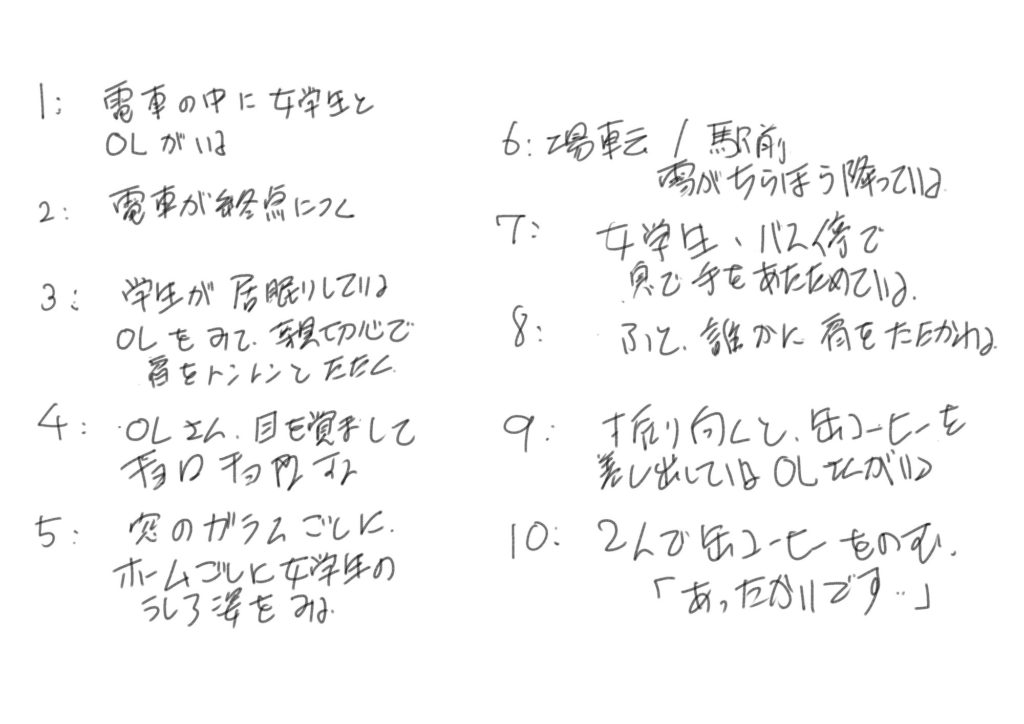 1: 電車の中に女学生と
OLがいる
2: 電車が終点につく
3: 学生が居眠りしている
OLをみて、親切心で
肩をトントンとたたく
4: OLさん、目を覚まして
ギョロギョロする
5: 窓のガラスごしに、
ホームごしに女学生の
うしろ姿をみる
6: 場転 / 駅前
雪がちらほう降っている
7: 女学生、バス停で
息で手をあたためている。
8: ふと、誰かに肩をたたかれる
9: 振り向くと、缶コーヒーを
差し出しているOLさんがいる
10: 2人で缶コーヒーをのむ。
「あったかいです‥」